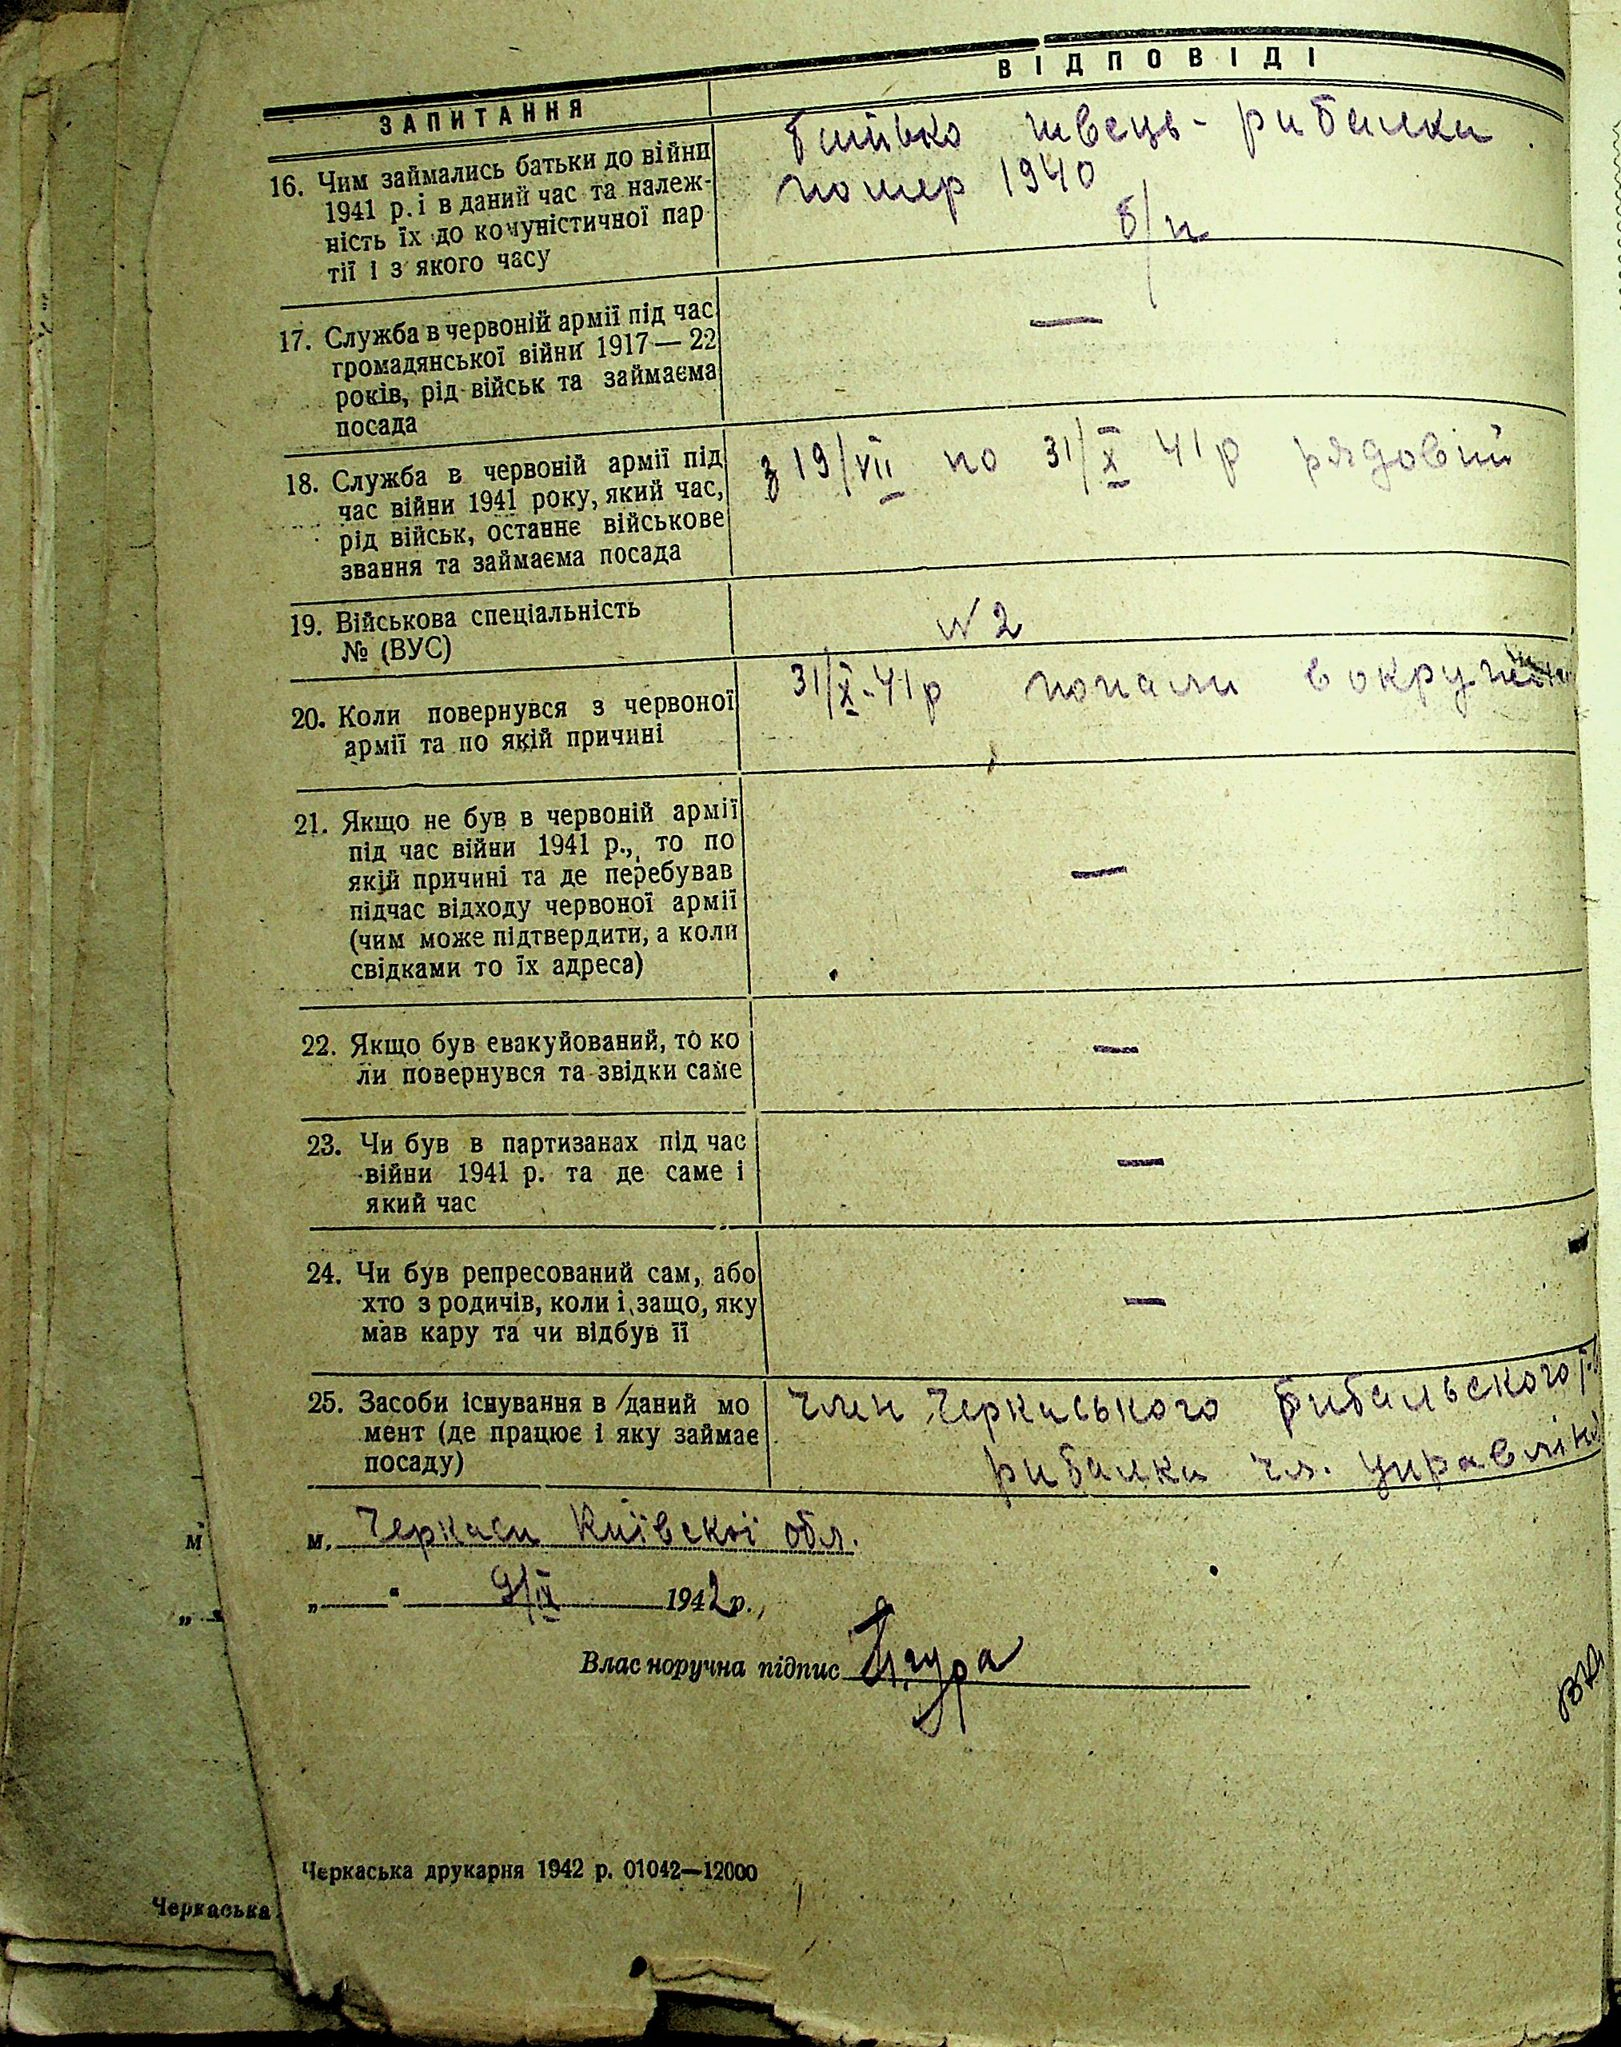 ЗАПИТАННЯ
ВІДПОВІДІ
16. Чим займались батьки до війни
1941 р. і в даний час та належ-
ність їх до комуністичної пар
тії і з якого часу
батько швець - рибалка
помер 1940
б/п
17. Служба в червоній армії під час
громадянської війни 1917 — 22
років, рід військ та займаєма
посада
—
18. Служба в червоній армії під
час війни 1941 року, який час,
рід військ, останнє військове
звання та займаєма посада
з 19/VII по 31/X 41р рядовій
19. Військова спеціальність
№ (ВУС)
№ 2
20. Коли повернувся з червоної
армії та по якій причині
31/X-41р попали в
21. Якщо не був в червоній армії
під час війни 1941 р., то по
якій причині та де перебував
підчас відходу червоної армії
(чим може підтвердити, а коли
свідками то їх адреса)
—
22. Якщо був евакуйований, то ко
ли повернувся та звідки саме
—
23. Чи був в партизанах під час
війни 1941 р. та де саме і
який час
—
24. Чи був репресований сам, або
хто з родичів, коли і защо, яку
мав кару та чи відбув її
—
25. Засоби існування в даний мо
мент (де працює і яку займає
посаду)
член Черкаського рибальського
рибалка чл.
м. Черкаси Київскої обл.
„ " 9/IX 1942 р.,
Власноручна підпис
Черкаська друкарня 1942 р. 01042—12000
м
„
Черкаська